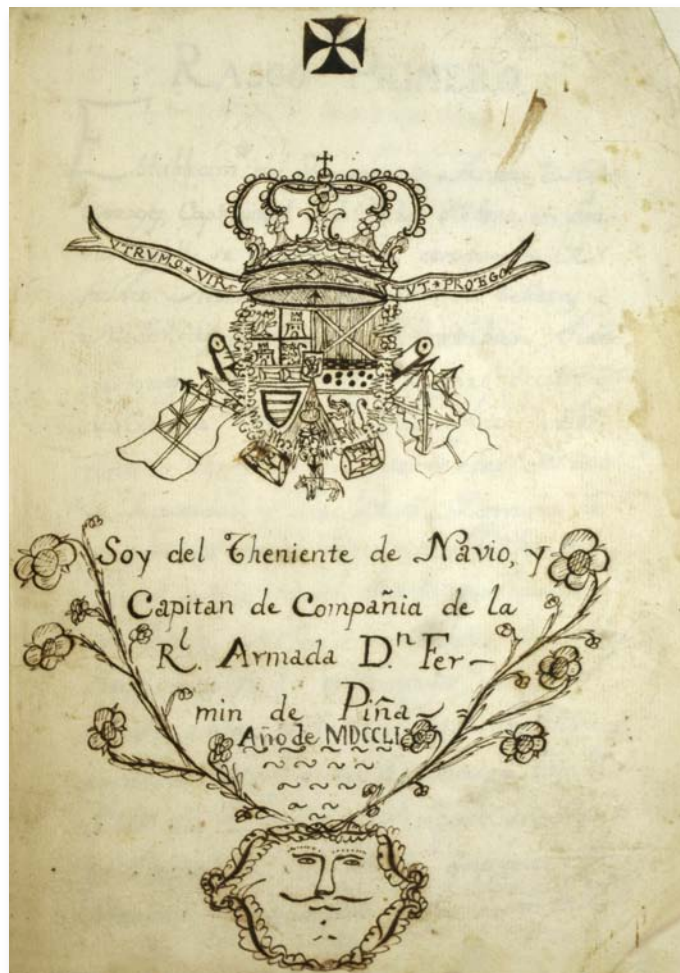 VTRVMQ * VIR
TVT * PROTEGO
Soy del Theniente de Navio, y
Capitan de Compañia de la
R.l Armada D.n Fer-
min de Piña
Año de